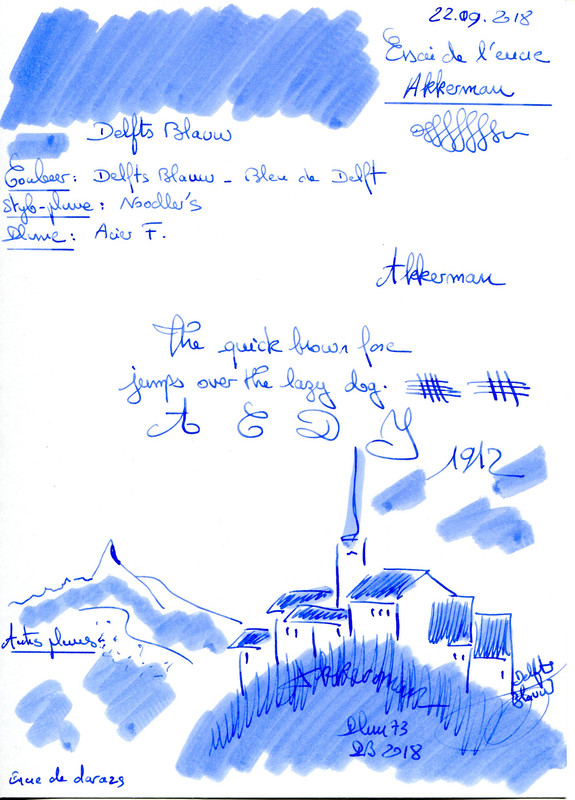 22.09.2018
Essai de l'encre
Akkerman
Delfts Blauw
Couleur: Delfts Blauw - Bleu de Delft
Stylo-plume: Noodler's
Plume: Acier F.
Akkerman
The quick brown fox
jumps over the lazy dog.
A E D Y
1912
Autres plumes
Akkerman
Delfts
Blauw
Plum 73
2018
Encre de